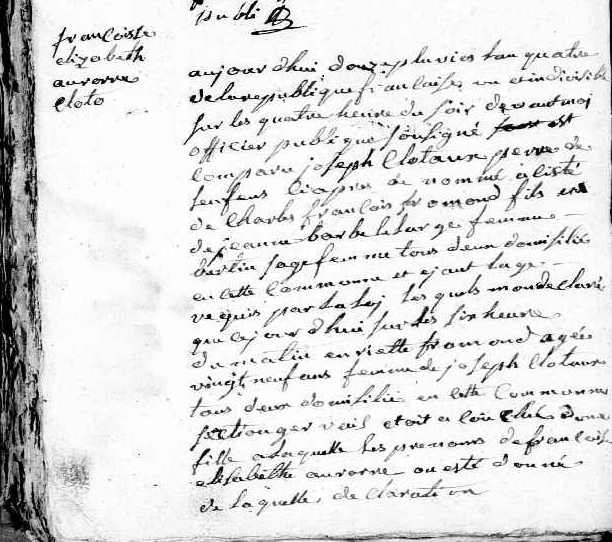 publi
françoisse
elizabeth
aurorre
cloto
aujourd'hui douze pluvios l'an quatre
de la republique française une et indivisible
sur les quatre heure du soir devant moi
officier publique sousigné est
comparu joseph Clotaux perre de
lenfens ciapres de nommé assisté
de Charles françois fromond fils
de jeanne barbe lelarge femme
bertin sage femme tous deux domisilié
en cette Commune et ejant lage
requis par la loj les quels mon declaré
que ajourd'hui sur les six heure
du matin enriette fromond agée
vingt neuf ans femme de joseph Clotaux
tous deux domisilié en cette Commune
etoit acouché d'une
fille a laquelle les prenoms de françoise
elisabethe aurorre on esté donné
de laquelle declaration